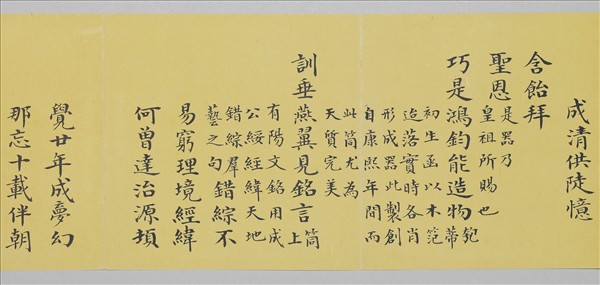 成清供陡憶
含飴拜
聖恩是器乃
皇祖所賜也
巧是鴻鈞能造物匏蒂
初生函以木笵
迨落實時各肖
形成器此製創
自康熙年間而
此筒尤為
天質完美
訓垂燕翼見銘言筒上
有陽文銘用成
公綏經緯天地
錯綜羣
藝之句錯綜不
易窮理境經緯
何曾達治源頓
覺廿年成夢幻
那忘十載伴朝